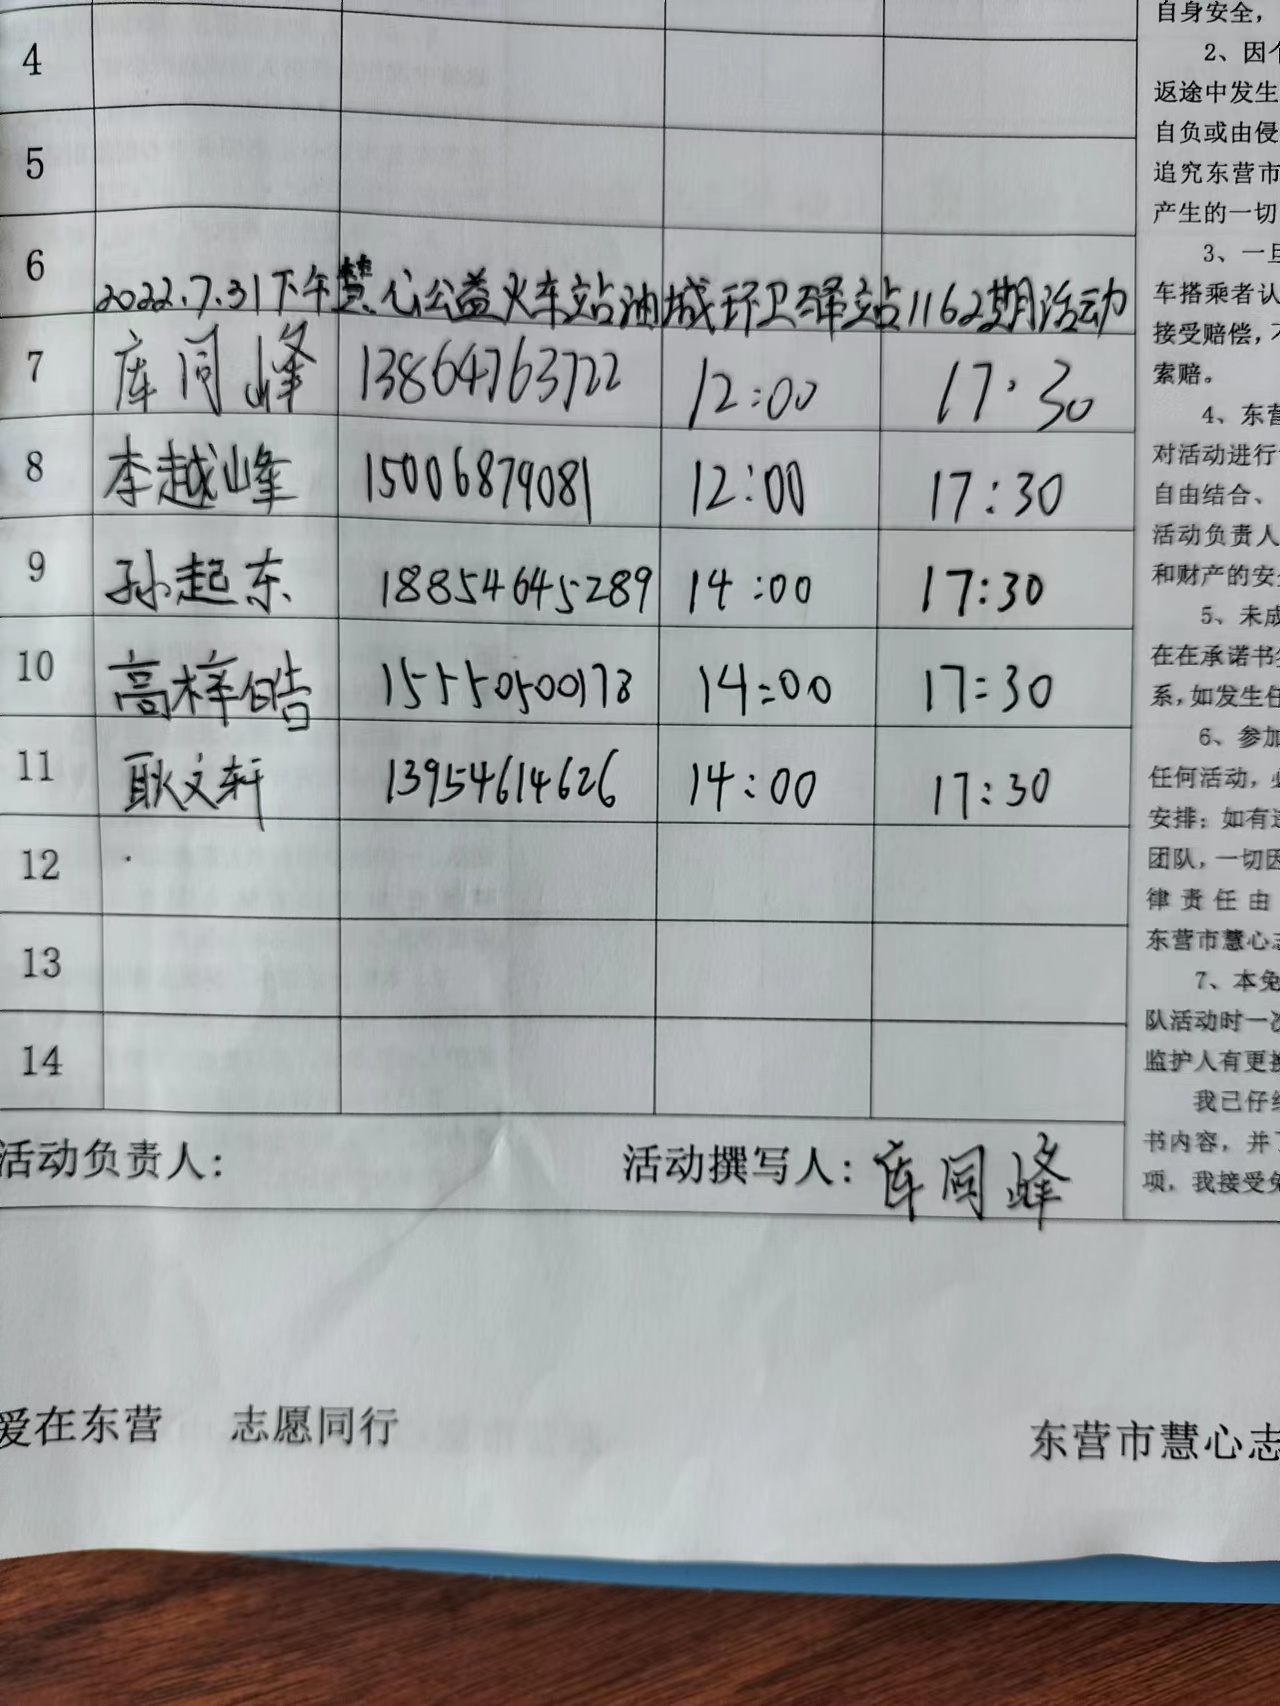 4
5
6 2022.7.31下午慧心公益火车站油城环卫驿站1162期活动
7 库同峰 13864763722 12:00 17:30
8 李越峰 15006879081 12:00 17:30
9 孙起东 18854645289 14:00 17:30
10 高梓皓 15550500178 14:00 17:30
11 耿文轩 13954614626 14:00 17:30
12
13
14
活动负责人: 活动撰写人: 库同峰
自身安全,
2、因个
返途中发生
自负或由侵
追究东营市
产生的一切
3、一旦
车搭乘者认
接受赔偿,不
索赔。
4、东营
对活动进行
自由结合、
活动负责人
和财产的安全
5、未成
在在承诺书
系,如发生任
6、参加
任何活动,必
安排;如有
团队,一切因
律责任由
东营市慧心志
7、本免
队活动时一次
监护人有更换
我已仔细
书内容,并
项,我接受免
爱在东营 志愿同行
东营市慧心志